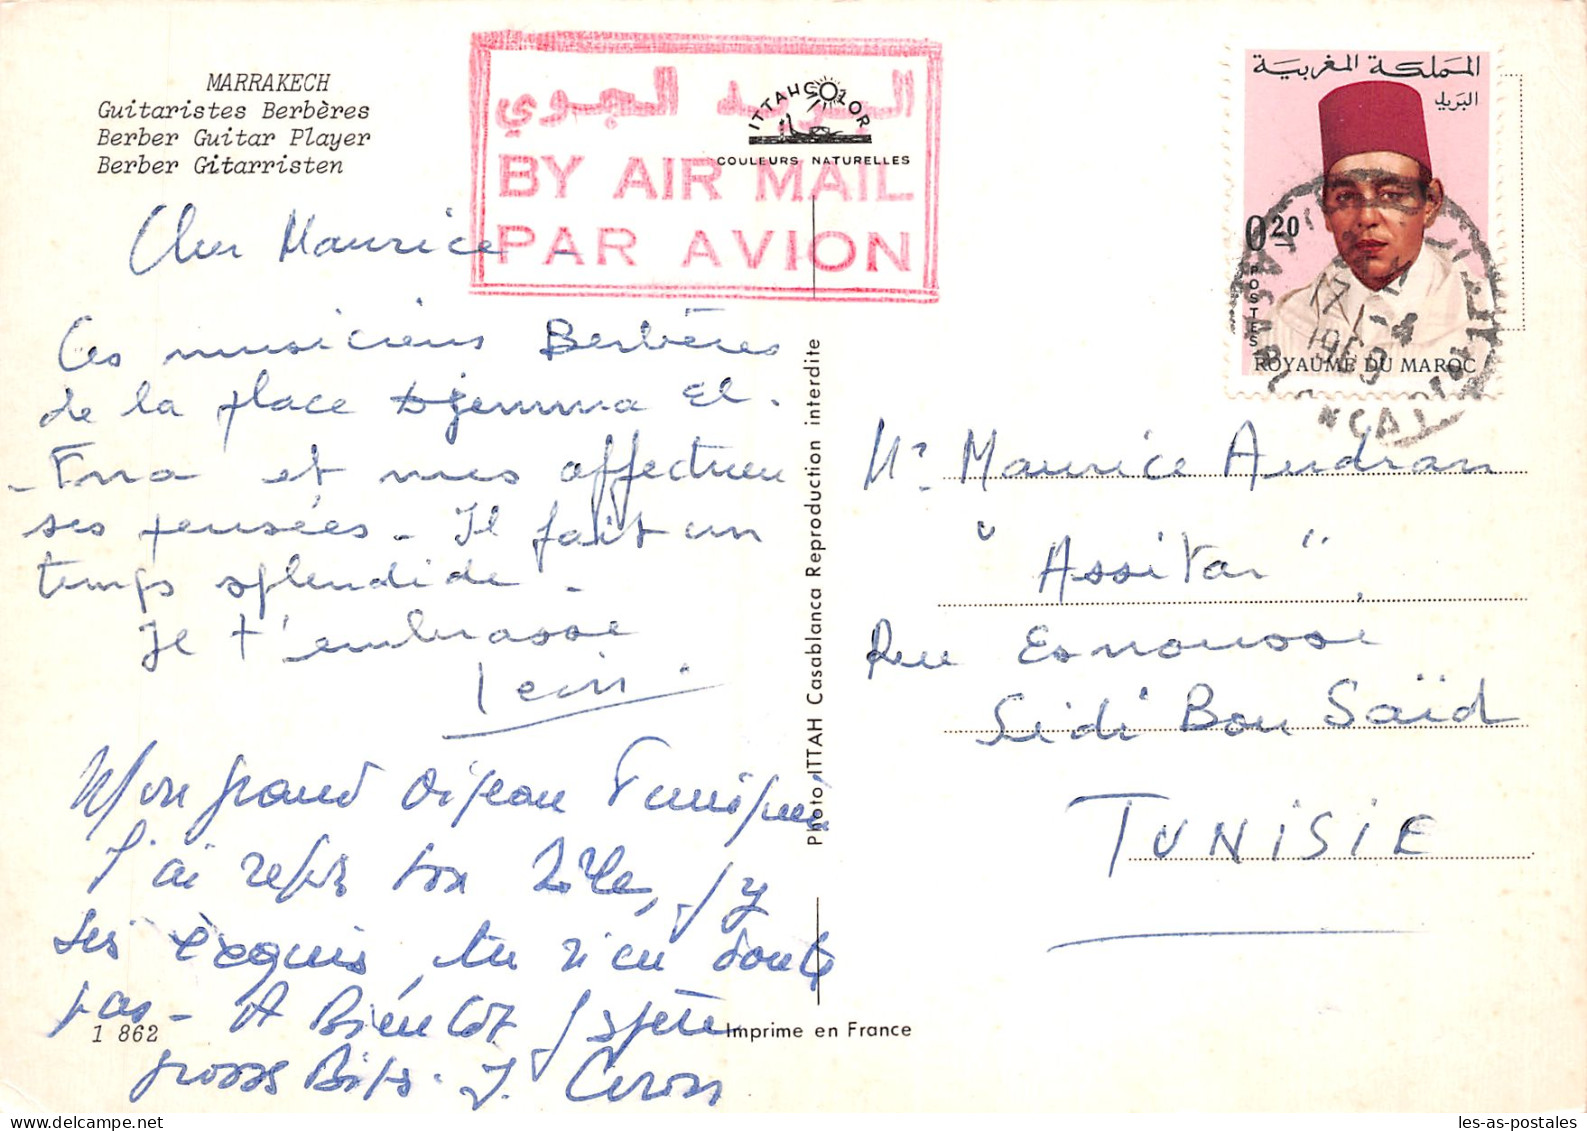 MARRAKECH
Guitaristes Berbères
Berber Guitar Player
Berber Gitarristen
البريد الجوي
BY AIR MAIL
PAR AVION
ITTAHCOLOR
COULEURS NATURELLES
المملكة المغربية
البريد
0.20
POSTES
ROYAUME DU MAROC
17 -4
1969
Cher Maurice
Ces musiciens Berbères
de la place Djemma El.
- Fna et mes affectueu
ses pensées - Il fait un
temps splendide.
Je t'embrasse
Mon grand oiseau Tunisien
J'ai repris ton rôle, j'y
suis exquis, tu n'en doute
pas - A Bientôt j'espère
grosses Bises. J.
Photo ITTAH Casablanca Reproduction interdite
1 862
Imprime en France
Mr Maurice Audran
"Assitar"
Rue Esnoussi
Sidi Bou Saïd
TUNISIE
les-as-postales